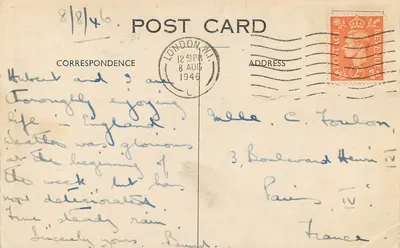 8/8/46
POST CARD
CORRESPONDENCE
ADDRESS
LONDON.W.1
12 PM
8 AUG
1946
POSTAGE
REVENUE
and I are
thoroughly enjoying
life - England
weather was glorious
at the beginning of
the week but has
now deteriorated
steady rain
Sincerely yours
Mlle. C. Foulon,
3, Boulevard Henri IV
Paris IV.
France.